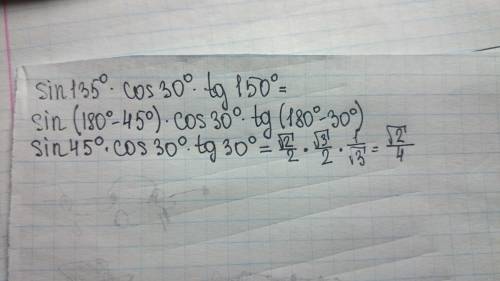 sin 135° · cos 30° · tg 150° =
sin (180° - 45°) · cos 30° · tg (180° - 30°)
sin 45° · cos 30° · tg 30° = √2/2 · √3/2 · 1/√3 = √2/4